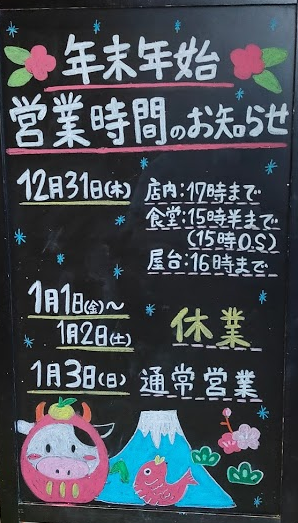 年末年始
営業時間のお知らせ
12月31日(木) 店内:17時まで
食堂:15時半まで
(15時O.S)
屋台:16時まで
1月1日(金)~
1月2日(土) 休業
1月3日(日) 通常営業